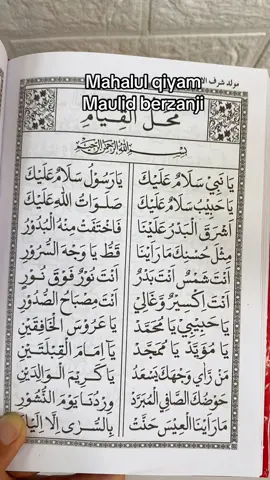 Mahalul qiyam
Maulid berzanji
مولد شرف الا
محل القيام
بِسْمِ اللهِ الرَّحْمٰنِ الرَّحِيْمِ
يَا نَبِيْ سَلَامٌ عَلَيْكَ يَا رَسُوْلُ سَلَامٌ عَلَيْكَ
يَا حَبِيْبُ سَلَامٌ عَلَيْكَ صَلَوَاتُ اللهِ عَلَيْكَ
اَشْرَقَ الْبَدْرُ عَلَيْنَا فَاخْتَفَتْ مِنْهُ الْبُدُوْرُ
مِثْلَ حُسْنِكَ مَا رَاَيْنَا قَطُّ يَا وَجْهَ السُّرُوْرِ
اَنْتَ شَمْسٌ اَنْتَ بَدْرٌ اَنْتَ نُوْرٌ فَوْقَ نُوْرٍ
اَنْتَ اِكْسِيْرٌ وَغَالِيْ اَنْتَ مِصْبَاحُ الصُّدُوْرِ
يَا حَبِيْبِيْ يَا مُحَمَّدُ يَا عَرُوْسَ الْخَافِقَيْنِ
يَا مُؤَيَّدُ يَا مُمَجَّدُ يَا اِمَامَ الْقِبْلَتَيْنِ
مَنْ رَاٰى وَجْهَكَ يَسْعَدُ يَا كَرِيْمَ الْوَالِدَيْنِ
حَوْضُكَ الصَّافِي الْمُبَرَّدُ وِرْدُنَا يَوْمَ النُّشُوْرِ
مَا رَاَيْنَا الْعِيْسَ حَنَّتْ بِالسُّرٰى اِلَّا اِلَيْكَ